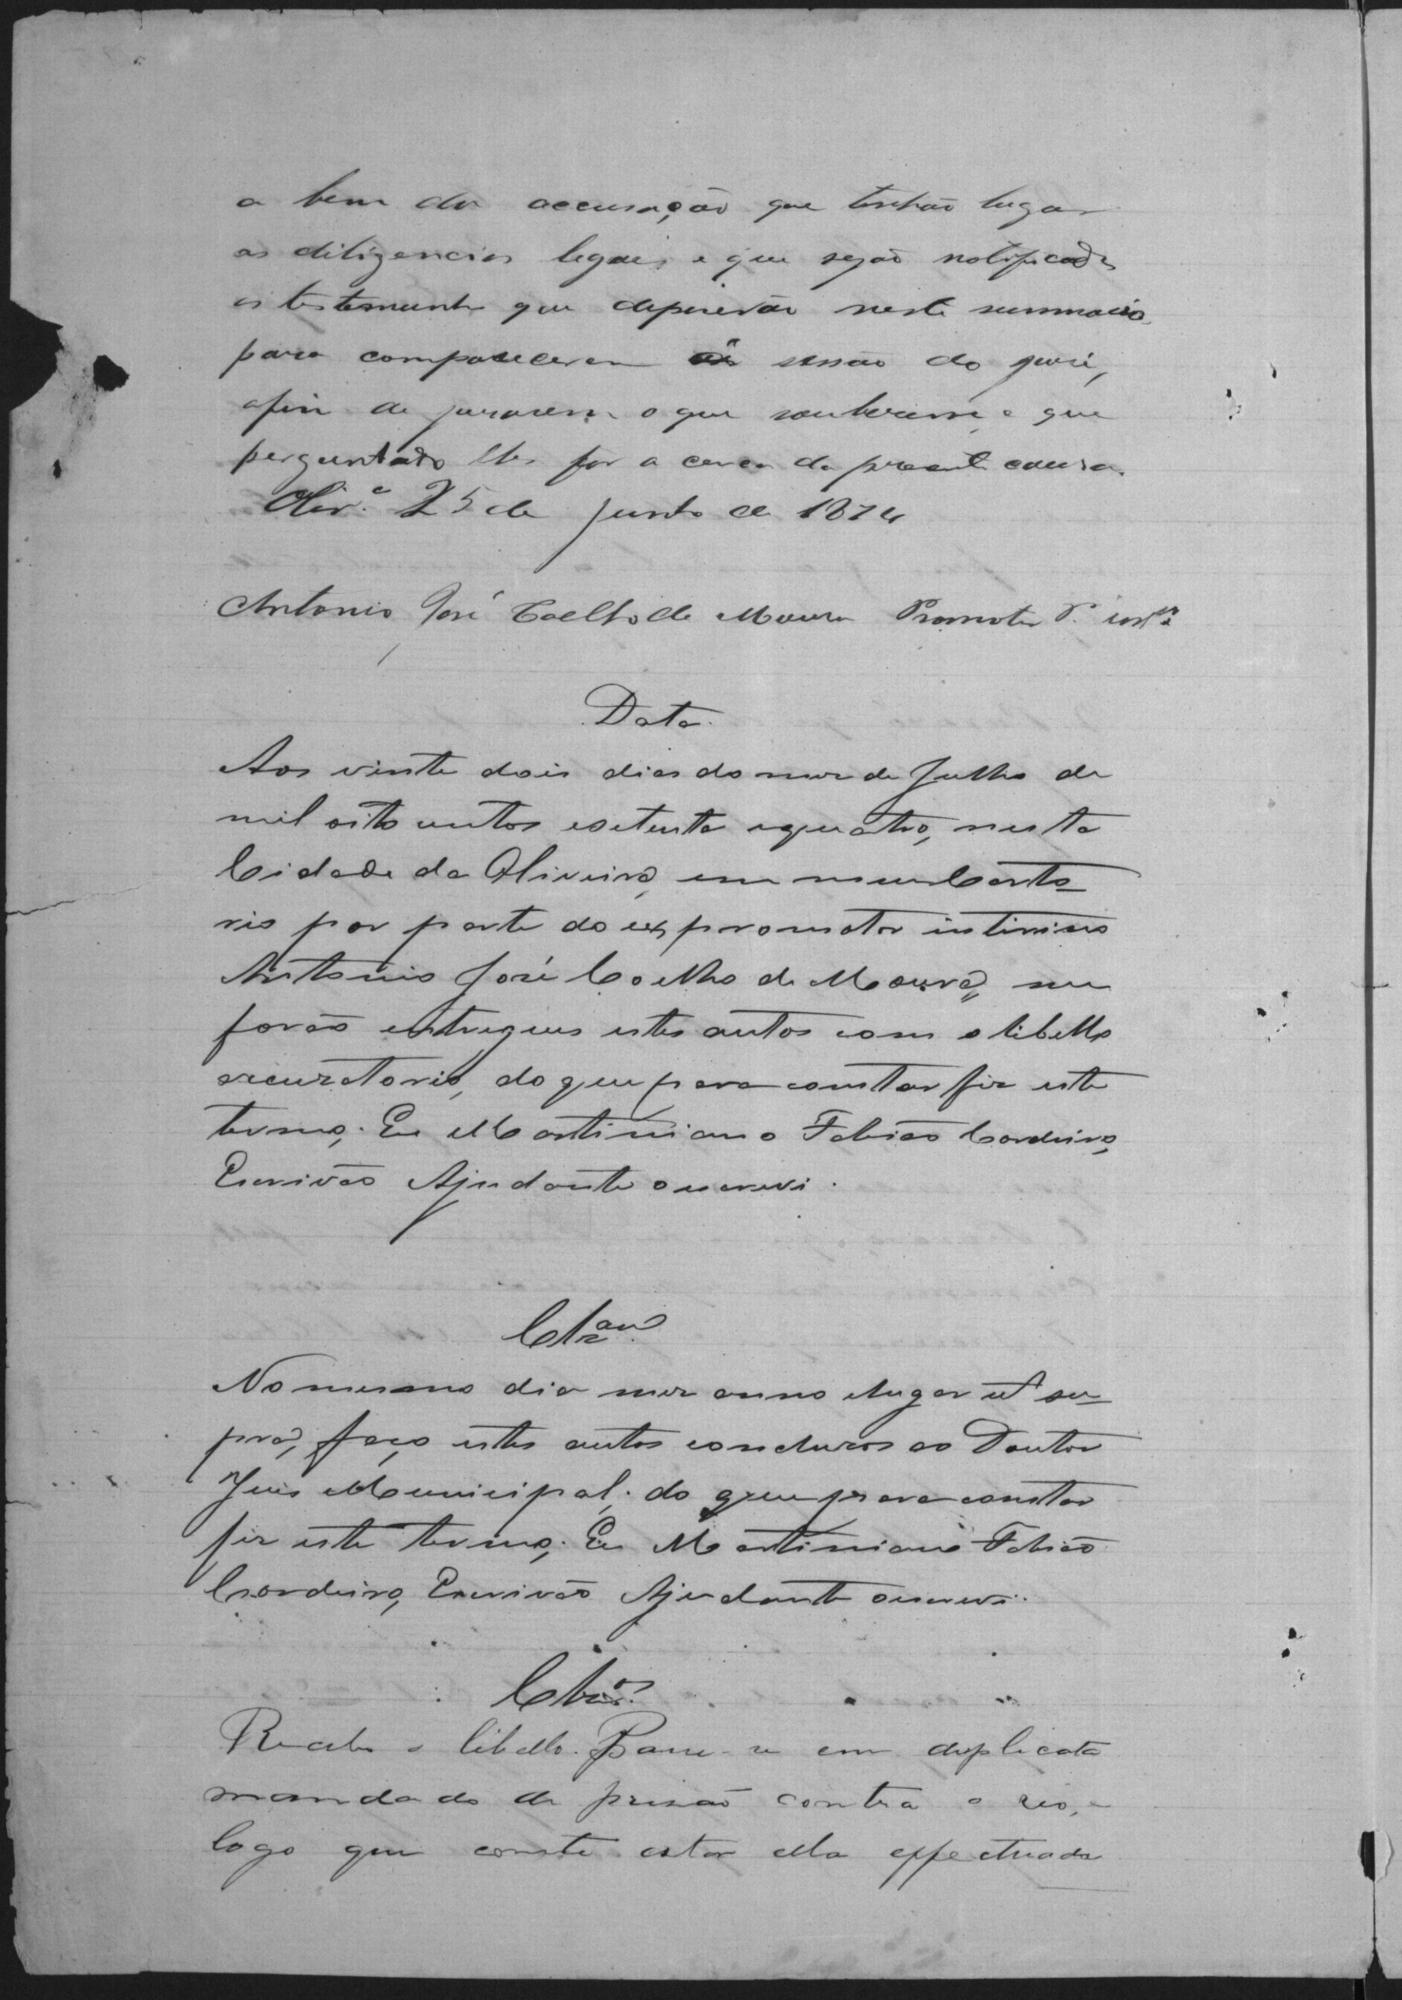 a bem da accusação que tenhão lugar
as diligencias legais, e que sejão notificadas
as testemunhas que depuserão neste summario
para comparecerem á sessão do jury,
afim de jurarem o que souberem e que
perguntado lhes for a cerca da presente causa.
Olivrª 25 de Junho de 1874
Antonio José Coelho de Moura Promotor P.
Data.
Aos vinte dois dias do mez de Julho de
mil oito centos e setenta e quatro, nesta
Cidade da Oliveira, em meu Carto-
rio por parte do ex promotor interino
Antonio José Coelho de Moura, me
forão entregues estes autos com o libello
accuzatorio, do que para constar fiz este
termo; Eu Martiniano Fabião Cordeiro,
Escrivão Ajudante o escrevi.
Clzam
No mesmo dia mez anno e lugar ut su-
pra, faço estes autos concluzos ao Doutor
Juis Municipal; do que para constar
fiz este termo; Eu Martiniano Fabião
Cordeiro, Escrivão Ajudante o escrevi.
Clzos
Recebo o libello. Passe-se em duplicata
mandado de prisão contra o réo, e
logo que conste estar ella effectuada